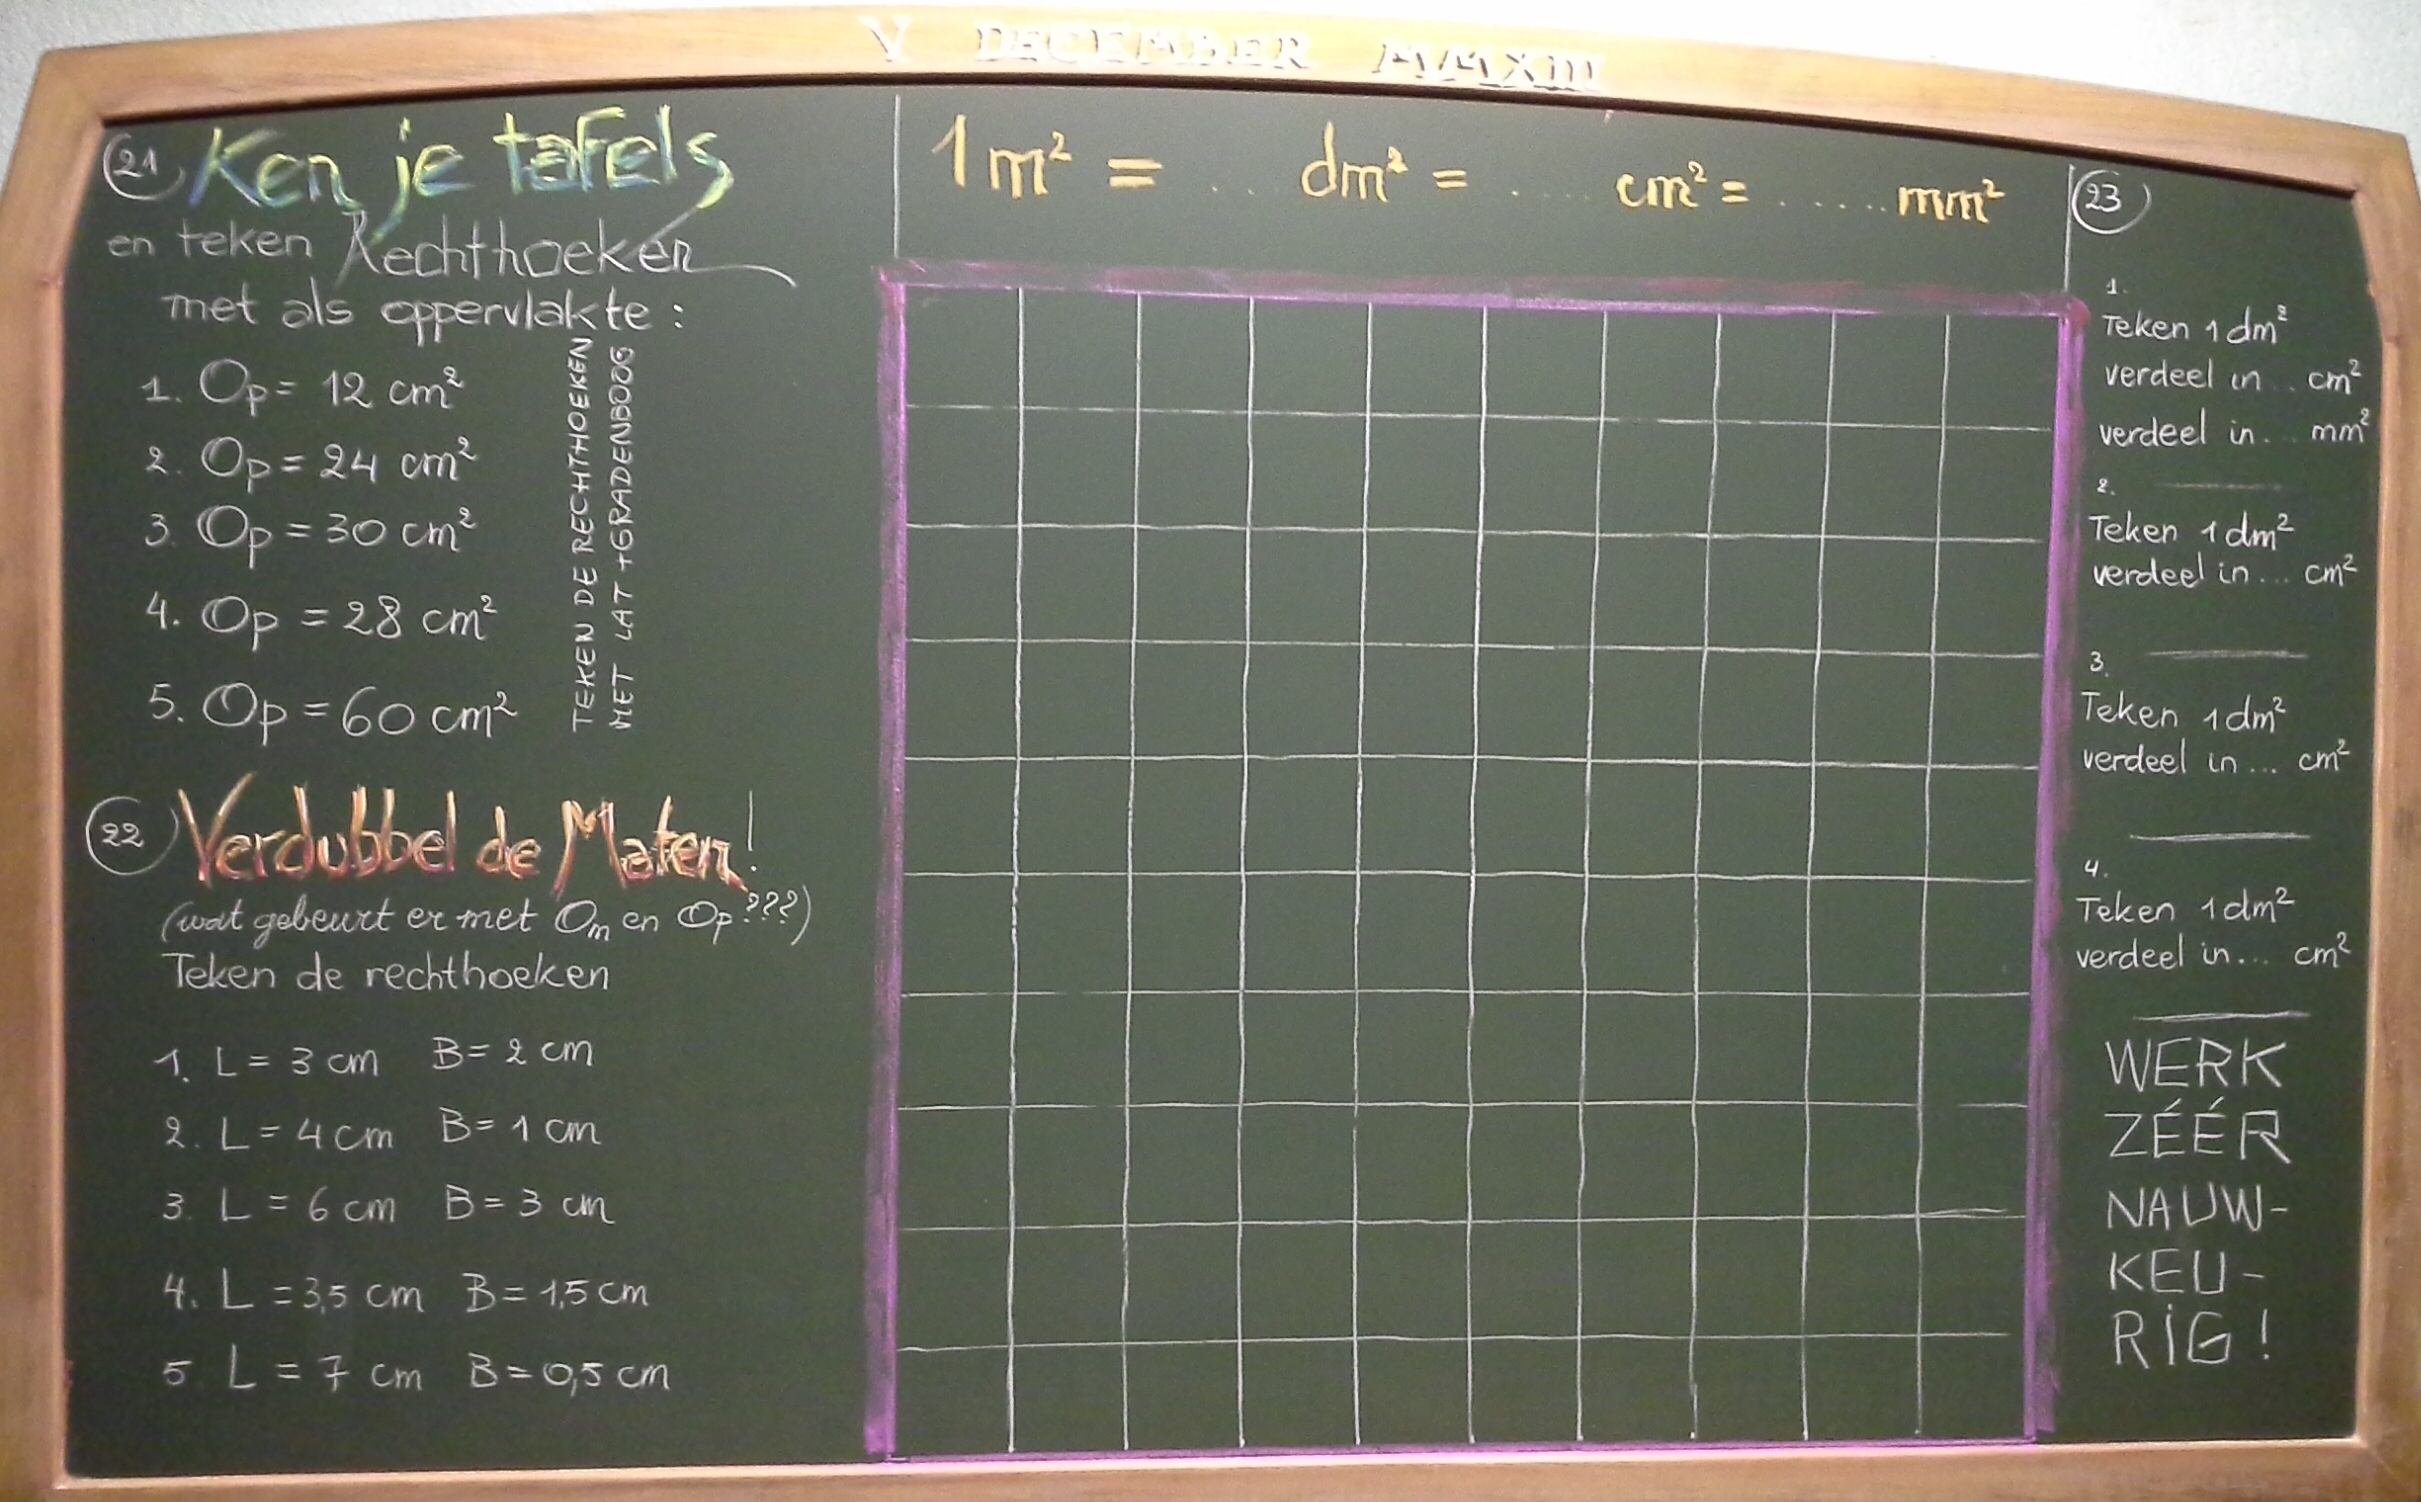 V DECEMBER MMXIII
21 Ken je tafels
en teken Rechthoeken
met als oppervlakte :
1. Op = 12 cm²
2. Op = 24 cm²
3. Op = 30 cm²
4. Op = 28 cm²
5. Op = 60 cm²
TEKEN DE RECHTHOEKEN
MET LAT + GRADENBOOG
22 Verdubbel de Maten!
(wat gebeurt er met Om en Op ???)
Teken de rechthoeken
1. L = 3 cm B = 2 cm
2. L = 4 cm B = 1 cm
3. L = 6 cm B = 3 cm
4. L = 3,5 cm B = 1,5 cm
5. L = 7 cm B = 0,5 cm
1 m² = ... dm² = ..... cm² = ...... mm²
23
1.
Teken 1 dm²
verdeel in ... cm²
verdeel in ... mm²
2.
Teken 1 dm²
verdeel in ... cm²
3.
Teken 1 dm²
verdeel in ... cm²
4.
Teken 1 dm²
verdeel in ... cm²
WERK
ZÉÉR
NAUW-
KEU-
RIG!